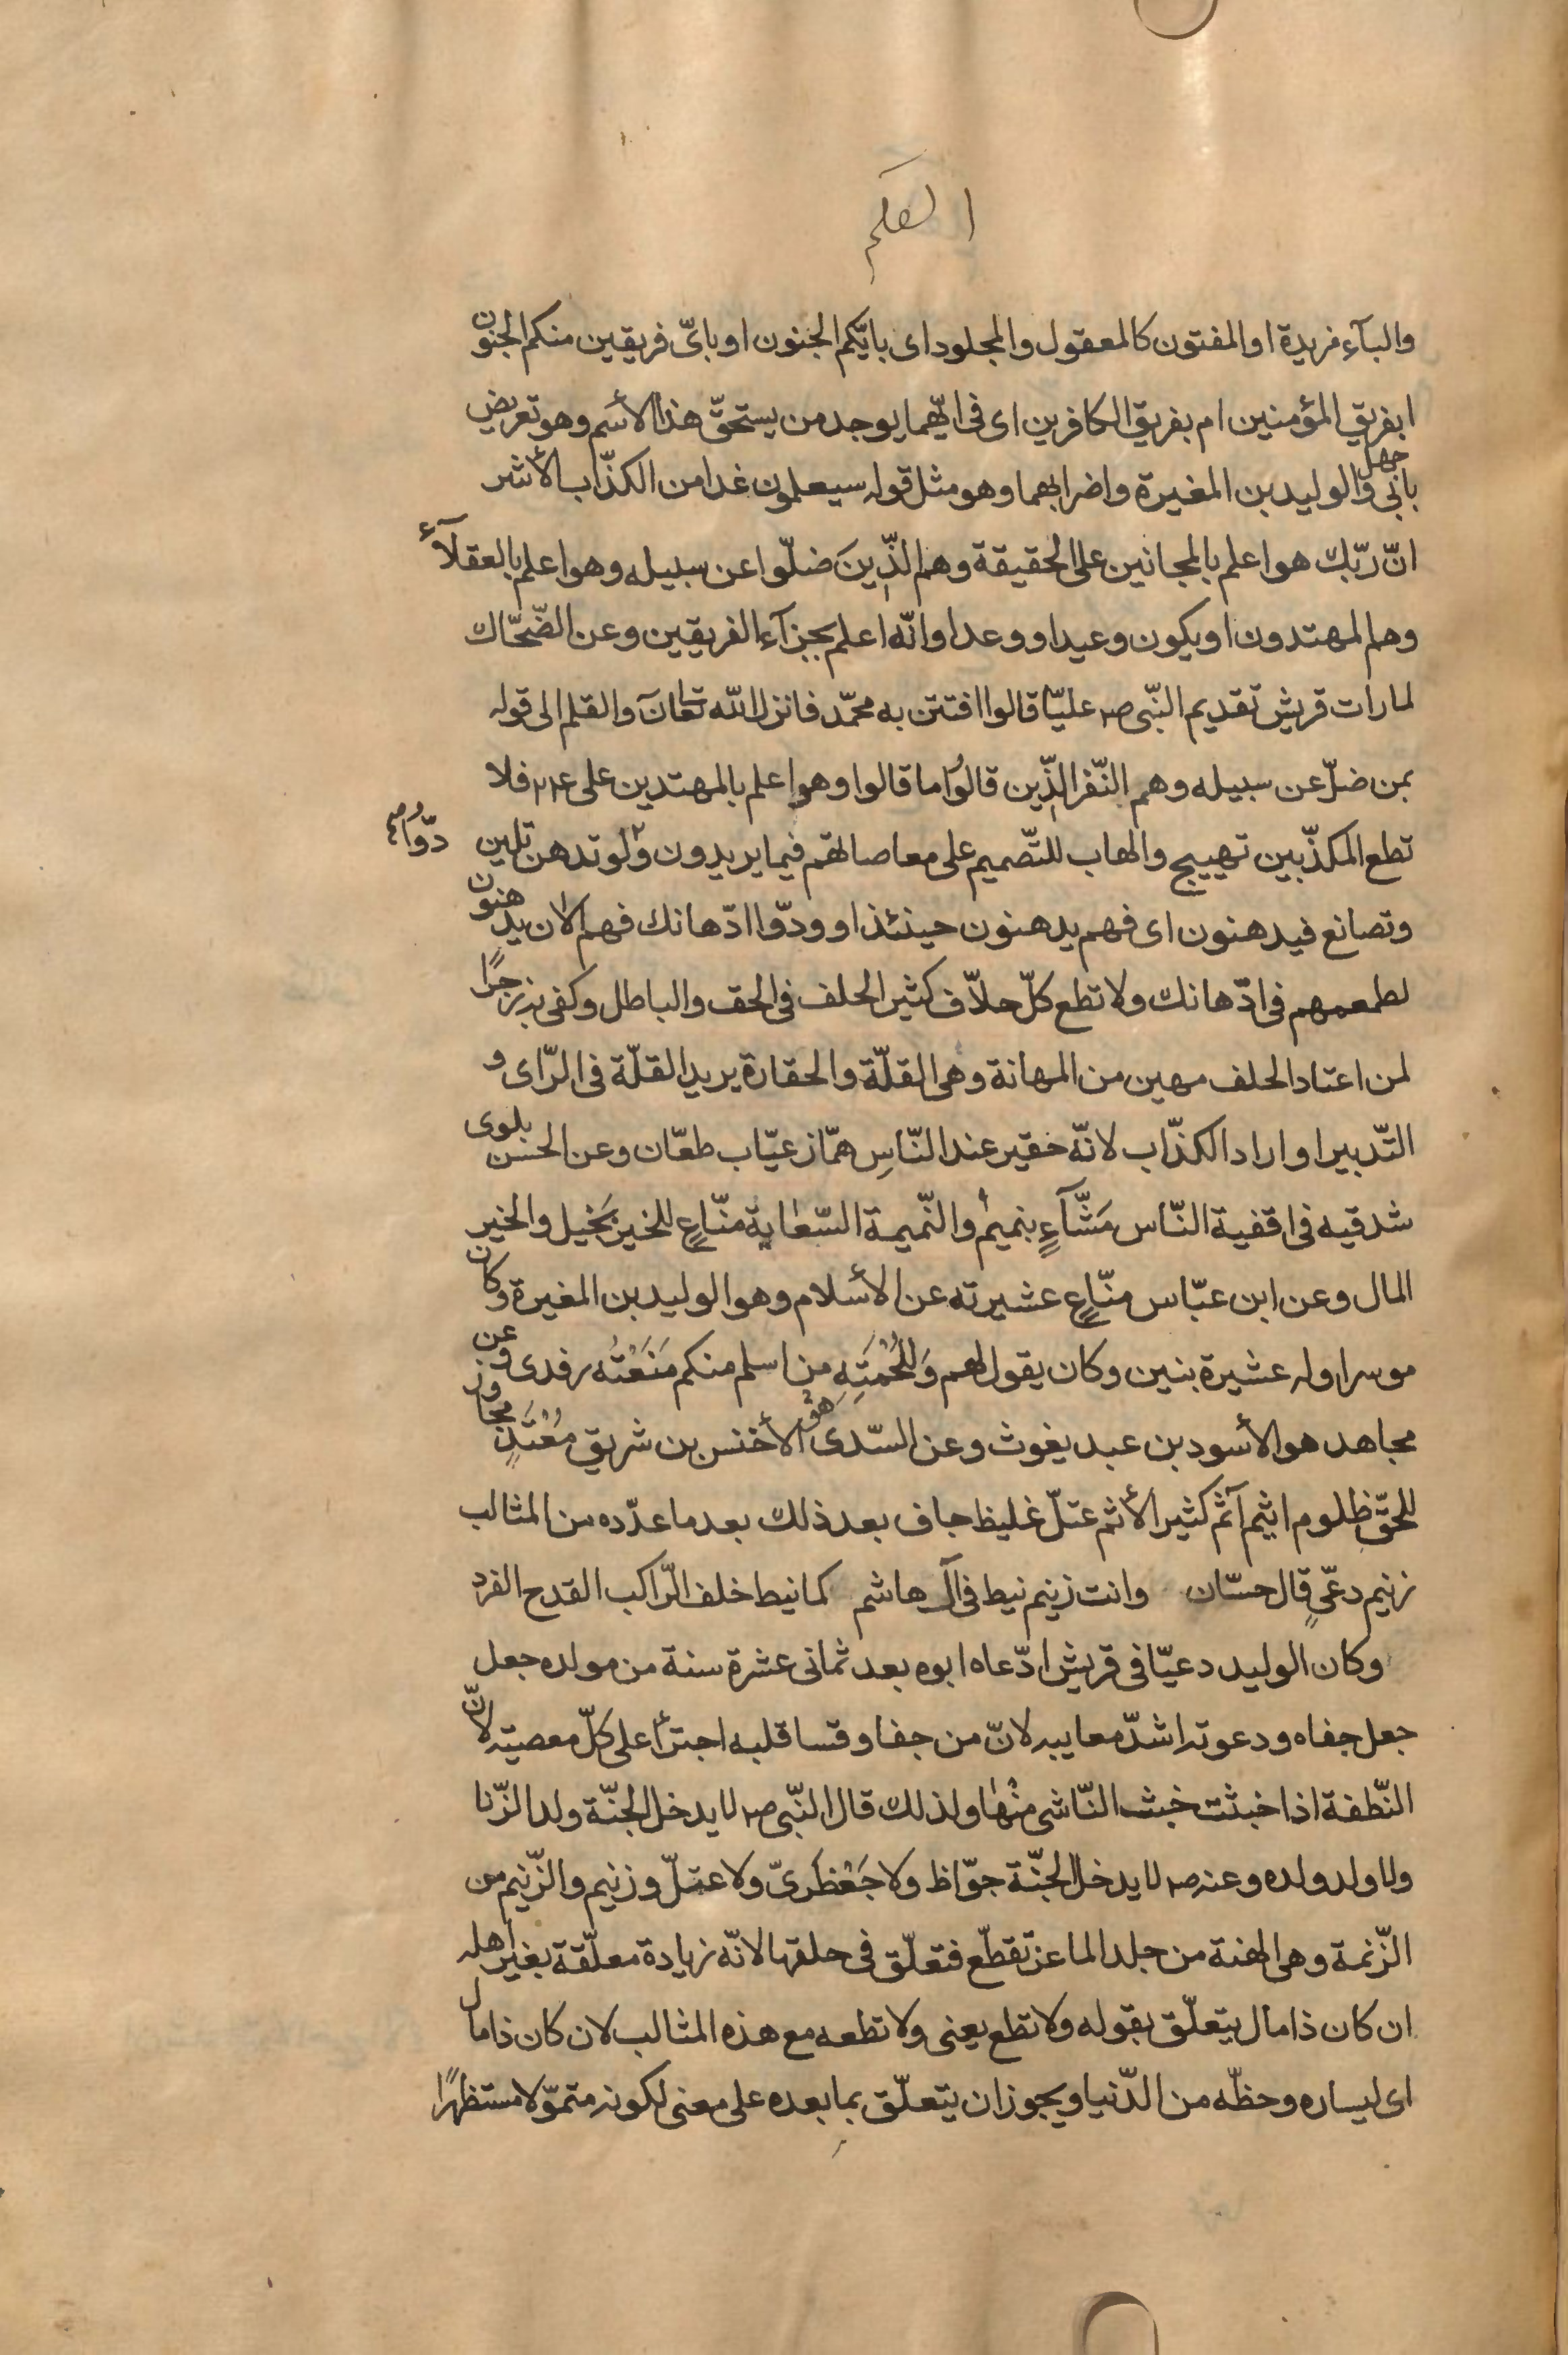 القلم
والبآء مزيدة او المفتون كالمعقول والمجلود اى بايّكم الجنون او باىّ فريقين منكم الجنون
ابفريق المؤمنين ام بفريق الكافرين اى فى ايّهما يوجد من يستحقّ هذا الأسم وهو تعريض
بابى جهل والوليد بن المغيرة واضرابهما وهو مثل قوله سيعلمون غدا من الكذّاب الأشر
انّ ربّك هو اعلم بالمجانين على الحقيقة وهم الّذينَ ضلّوا عن سبيله وهو اعلم بالعقلآء
وهم المهتدون او يكون وعيدا ووعدا وانّه اعلم بجزآء الفريقين وعن الضّحّاك
لما رات قريش تقديم النّبى ص عليّا قالوا افتتن به محمّد فانزل الله تعا نَ والقلم الى قوله
بمن ضلّ عن سبيله وهم النّفر الّذين قالوا ما قالوا وهو اعلم بالمهتدين على ع فلا
تطع المكذّبين تهييج والهاب للتّصميم على معاصاتهم فيما يريدون ودّوا لو تدهن تلين
وتصانع فيدهنون اى فهم يدهنون حينئذ او ودّوا ادّهانك فهم الان يدهنون
لطمعهم فى ادّهانك ولا تطع كلّ حلاّف كثير الحلف فى الحق والباطل وكفى به زجرًا
لمن اعتاد الحلف مهين من المهانة وهى القلّة والحقارة يريد القلّة فى الرّاى و
التّدبير او اراد الكذّاب لانّه حقير عند النّاسِ همّاز عيّاب طعّان وعن الحسن يلوى
شدقيه فى اقفية النّاس مَشّآءٍ بنميم والنّميمة السّعاية منّاعٍ للخير بخيل والخير
المال وعن ابن عبّاس منّاعٍ عشيرته عن الأسلام وهو الوليد بن المغيرة وكان
موسرا وله عشيرة بنين وكان يقول لهم وَللُحْمَتِهِ من اسلم منكم مَنَعْتُه رفدى وعن
مجاهد هو الأسود بن عبد يغوث وعن السّدى هو الأخنس بن شريق مُعْتَدٍ مجاوز
للحقّ ظلوم اثيم آثم كثير الأثم عتلّ غليظ جاف بعد ذلك بعد ما عدّده من المثالب
زنيم دعّىٍ قال حسّان وانت زنيم نيط فى آل هاشم كما نيط خلف الرّاكب القدح الفرد
وكان الوليد دعيّا فى قريش ادّعاه ابوه بعد ثمانى عشرة سنة من مولده جعل
جعل جفاه ودعوته اشدّ معايبه لانّ من جفا وقسا قلبه اجترأ على كلّ معصيته لانّ
النّطفة اذا خبثت خبث النّاشى منْها ولذلك قال النّبى ص لا يدخل الجنّة ولد الزّنا
ولا ولد ولده وعنه ص لا يدخل الجنّة جوّاظ ولا جَعْظرىّ ولا عتلّ وزنيم والزّنيم من
الزّنمة وهى الهنة من جلد الماعز تقطّع فتعلّق فى حلقها لانّه زيادة معلّقة بغير اهله
ان كان ذا مال يتعلّق بقوله ولا تطع يعنى ولا تطعه مع هذه المثالب لان كان ذا مال
اى ليساره وحظّه من الدّنيا ويجوز ان يتعلّق بما بعده على معنى لكونه متموّلا مستظهرًا